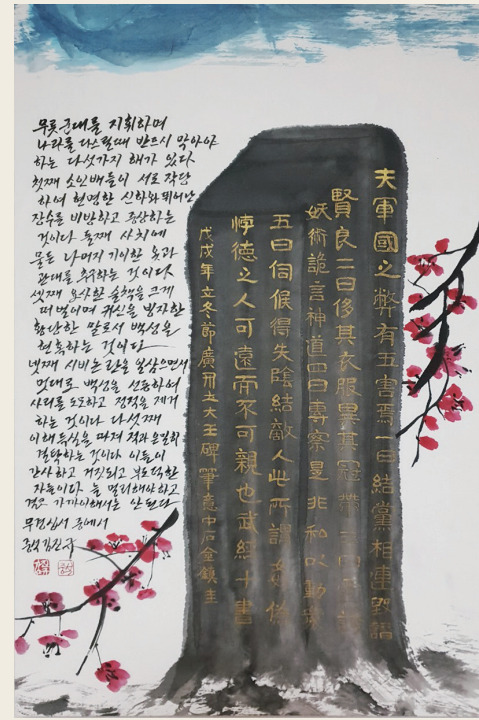 夫軍國之弊有五害焉一曰結黨相連毀譖
賢良二曰侈其衣服異其冠帶三曰
妖術詭言神道四曰專察是非私以動衆
五曰伺候得失陰結敵人此所謂奸僞
悖德之人可遠而不可親也武經十書
戊戌年立冬節廣開土大王碑筆意中石金鎭圭
무릇 군대를 지휘하며
나라를 다스릴때 반드시 막아야
하는 다섯가지 해가 있다
첫째 소인배들이 서로 작당
하여 현명한 신하와 뛰어난
장수를 비방하고 중상하는
것이다 둘째 사치에
물든 나머지 기이한 옷과
관대를 추구하는 것이다
셋째 요사한 술책을 크게
떠벌이며 귀신을 빙자한
황당한 말로서 백성을
현혹하는 것이다
넷째 시비논란을 일삼으면서
멋대로 백성을 선동하여
사리를 도모하고 정적을 제거
하는 것이다 다섯째
이해득실을 따져 적과 은밀히
결탁하는 것이다 이들이
간사하고 거짓되고 부도덕한
자들이다 늘 멀리해야하고
결코 가까이해서는 안 된다
무경십서 중에서
중석 김진규